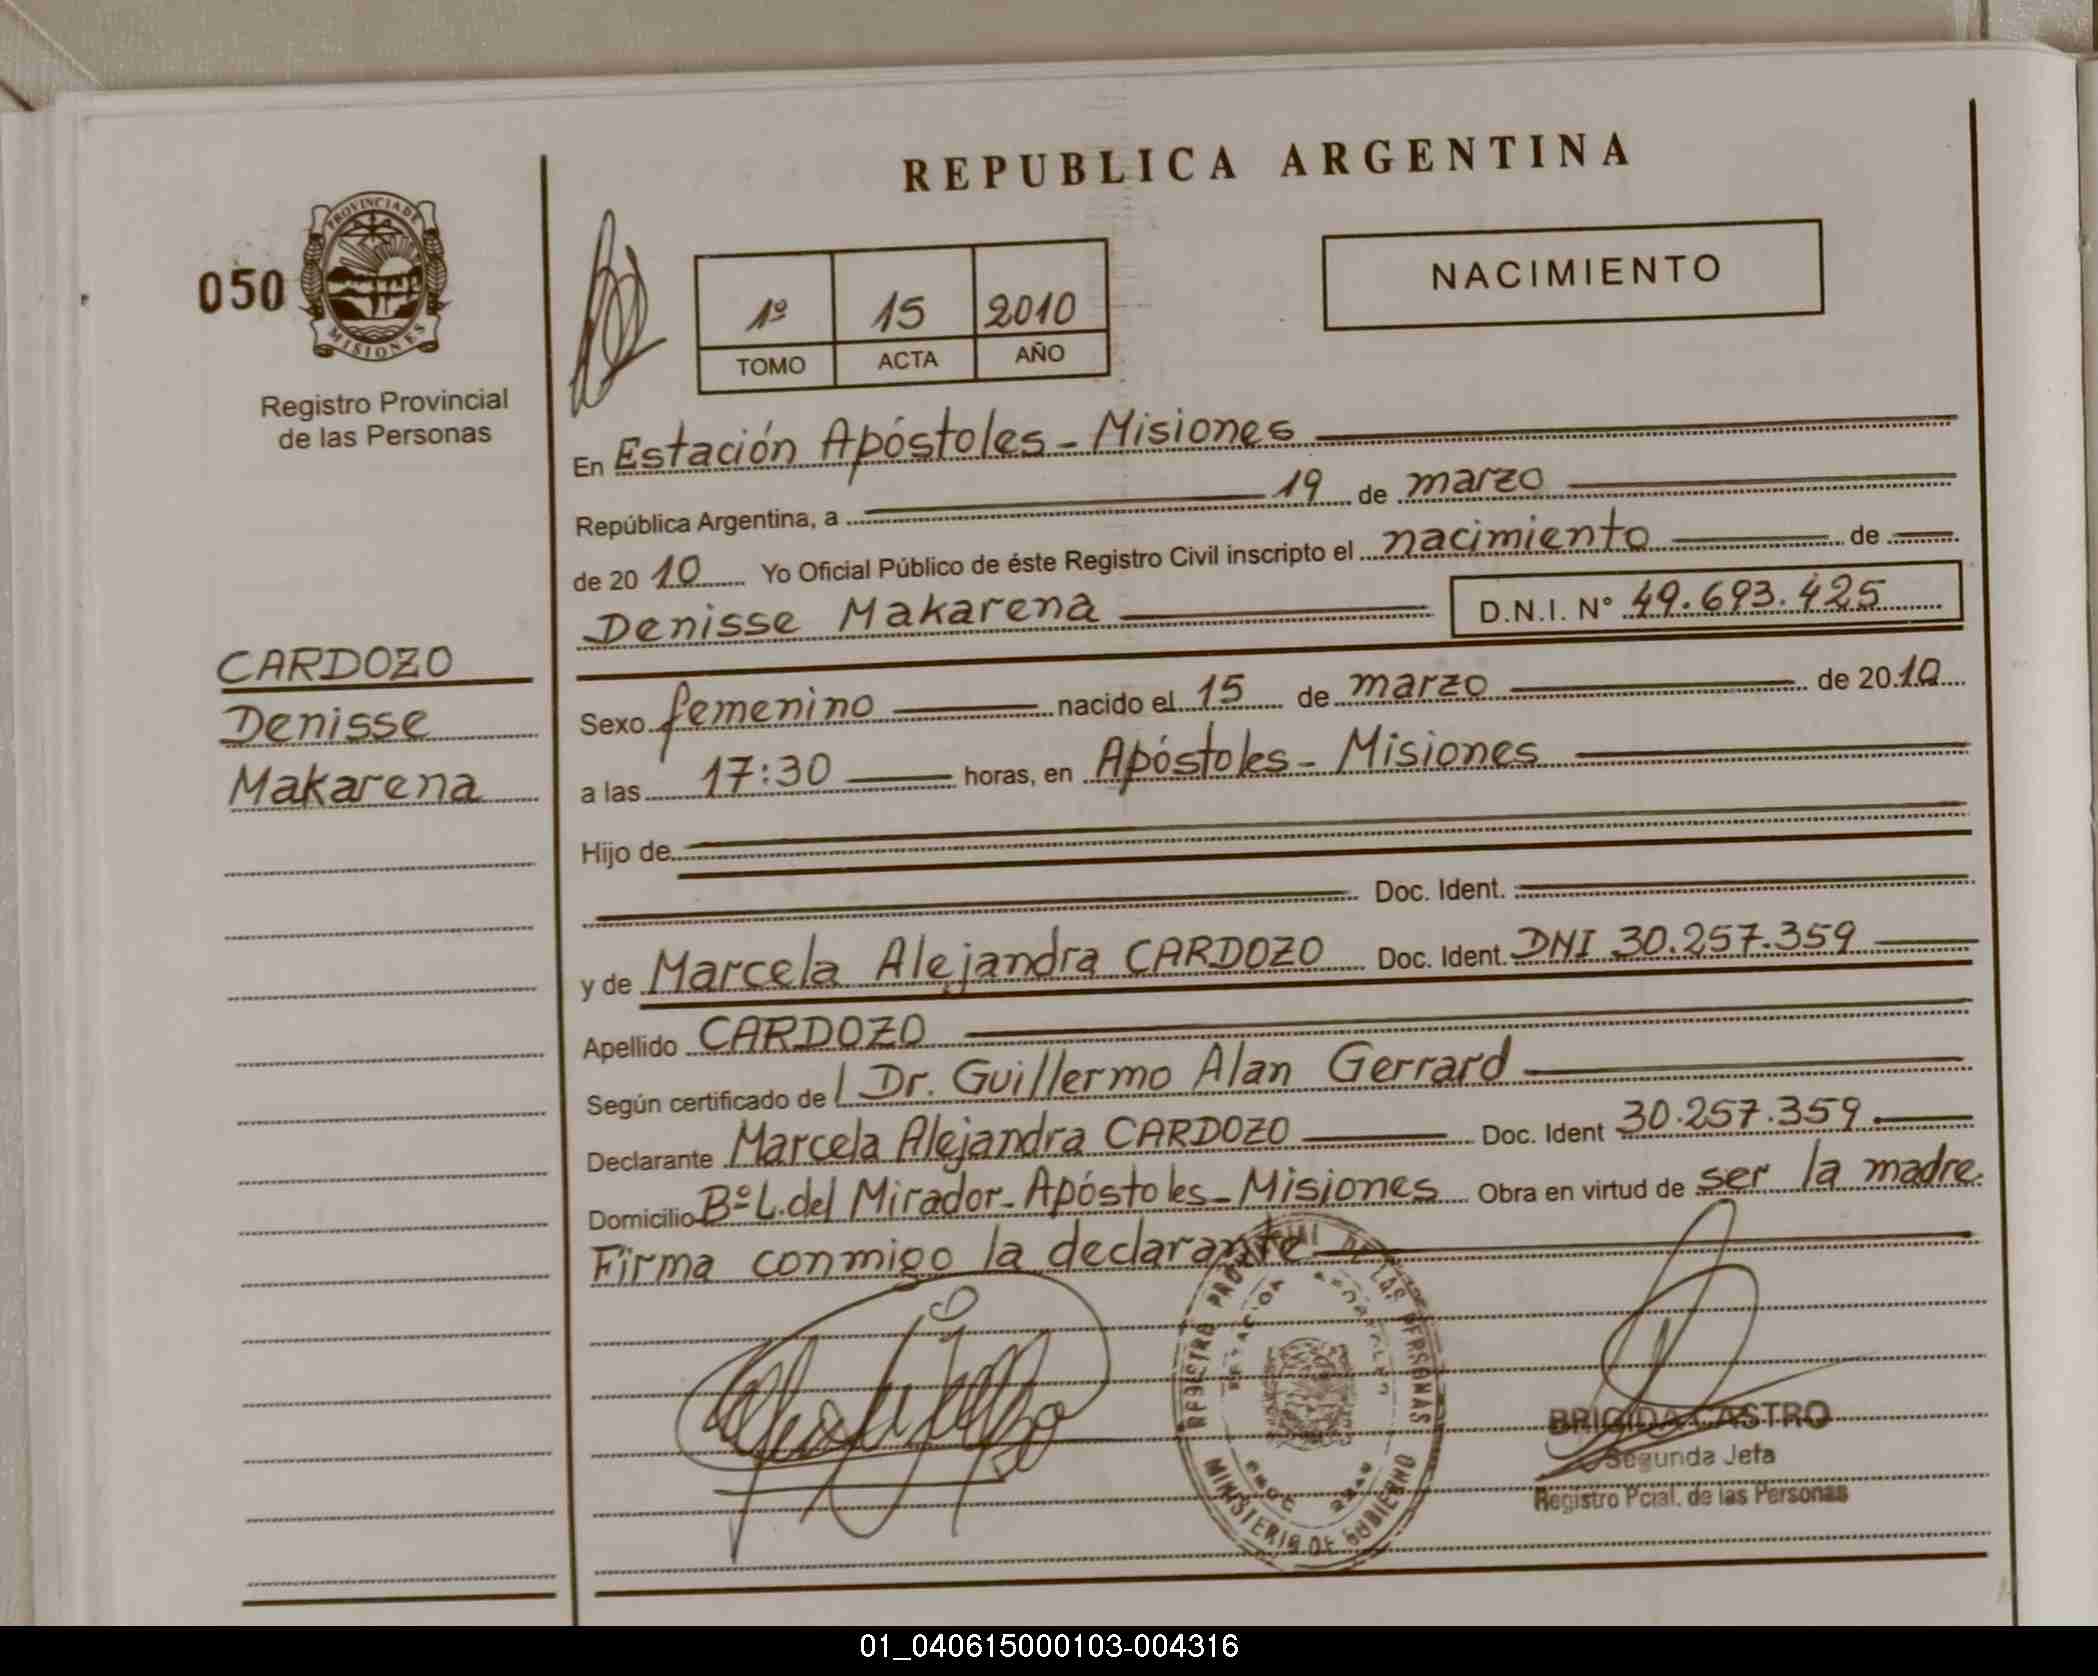 REPUBLICA ARGENTINA
050
PROVINCIA DE
MISIONES
Registro Provincial
de las Personas
1º 15 2010
TOMO ACTA AÑO
NACIMIENTO
CARDOZO
Denisse
Makarena
En Estación Apóstoles - Misiones
República Argentina, a 19 de marzo
de 20 10 Yo Oficial Público de éste Registro Civil inscripto el nacimiento de
Denisse Makarena D.N.I. N° 49.693.425
Sexo femenino nacido el 15 de marzo de 20 10
a las 17:30 horas, en Apóstoles - Misiones
Hijo de
Doc. Ident.
y de Marcela Alejandra CARDOZO Doc. Ident. DNI 30.257.359
Apellido CARDOZO
Según certificado de l Dr. Guillermo Alan Gerrard
Declarante Marcela Alejandra CARDOZO Doc. Ident 30.257.359.
Domicilio Bº L. del Mirador - Apóstoles - Misiones Obra en virtud de ser la madre.
Firma conmigo la declarante
REGISTRO PROVINCIAL DE LAS PERSONAS
MINISTERIO DE GOBIERNO
BRIGIDA CASTRO
Segunda Jefa
Registro Pcial. de las Personas
01_040615000103-004316